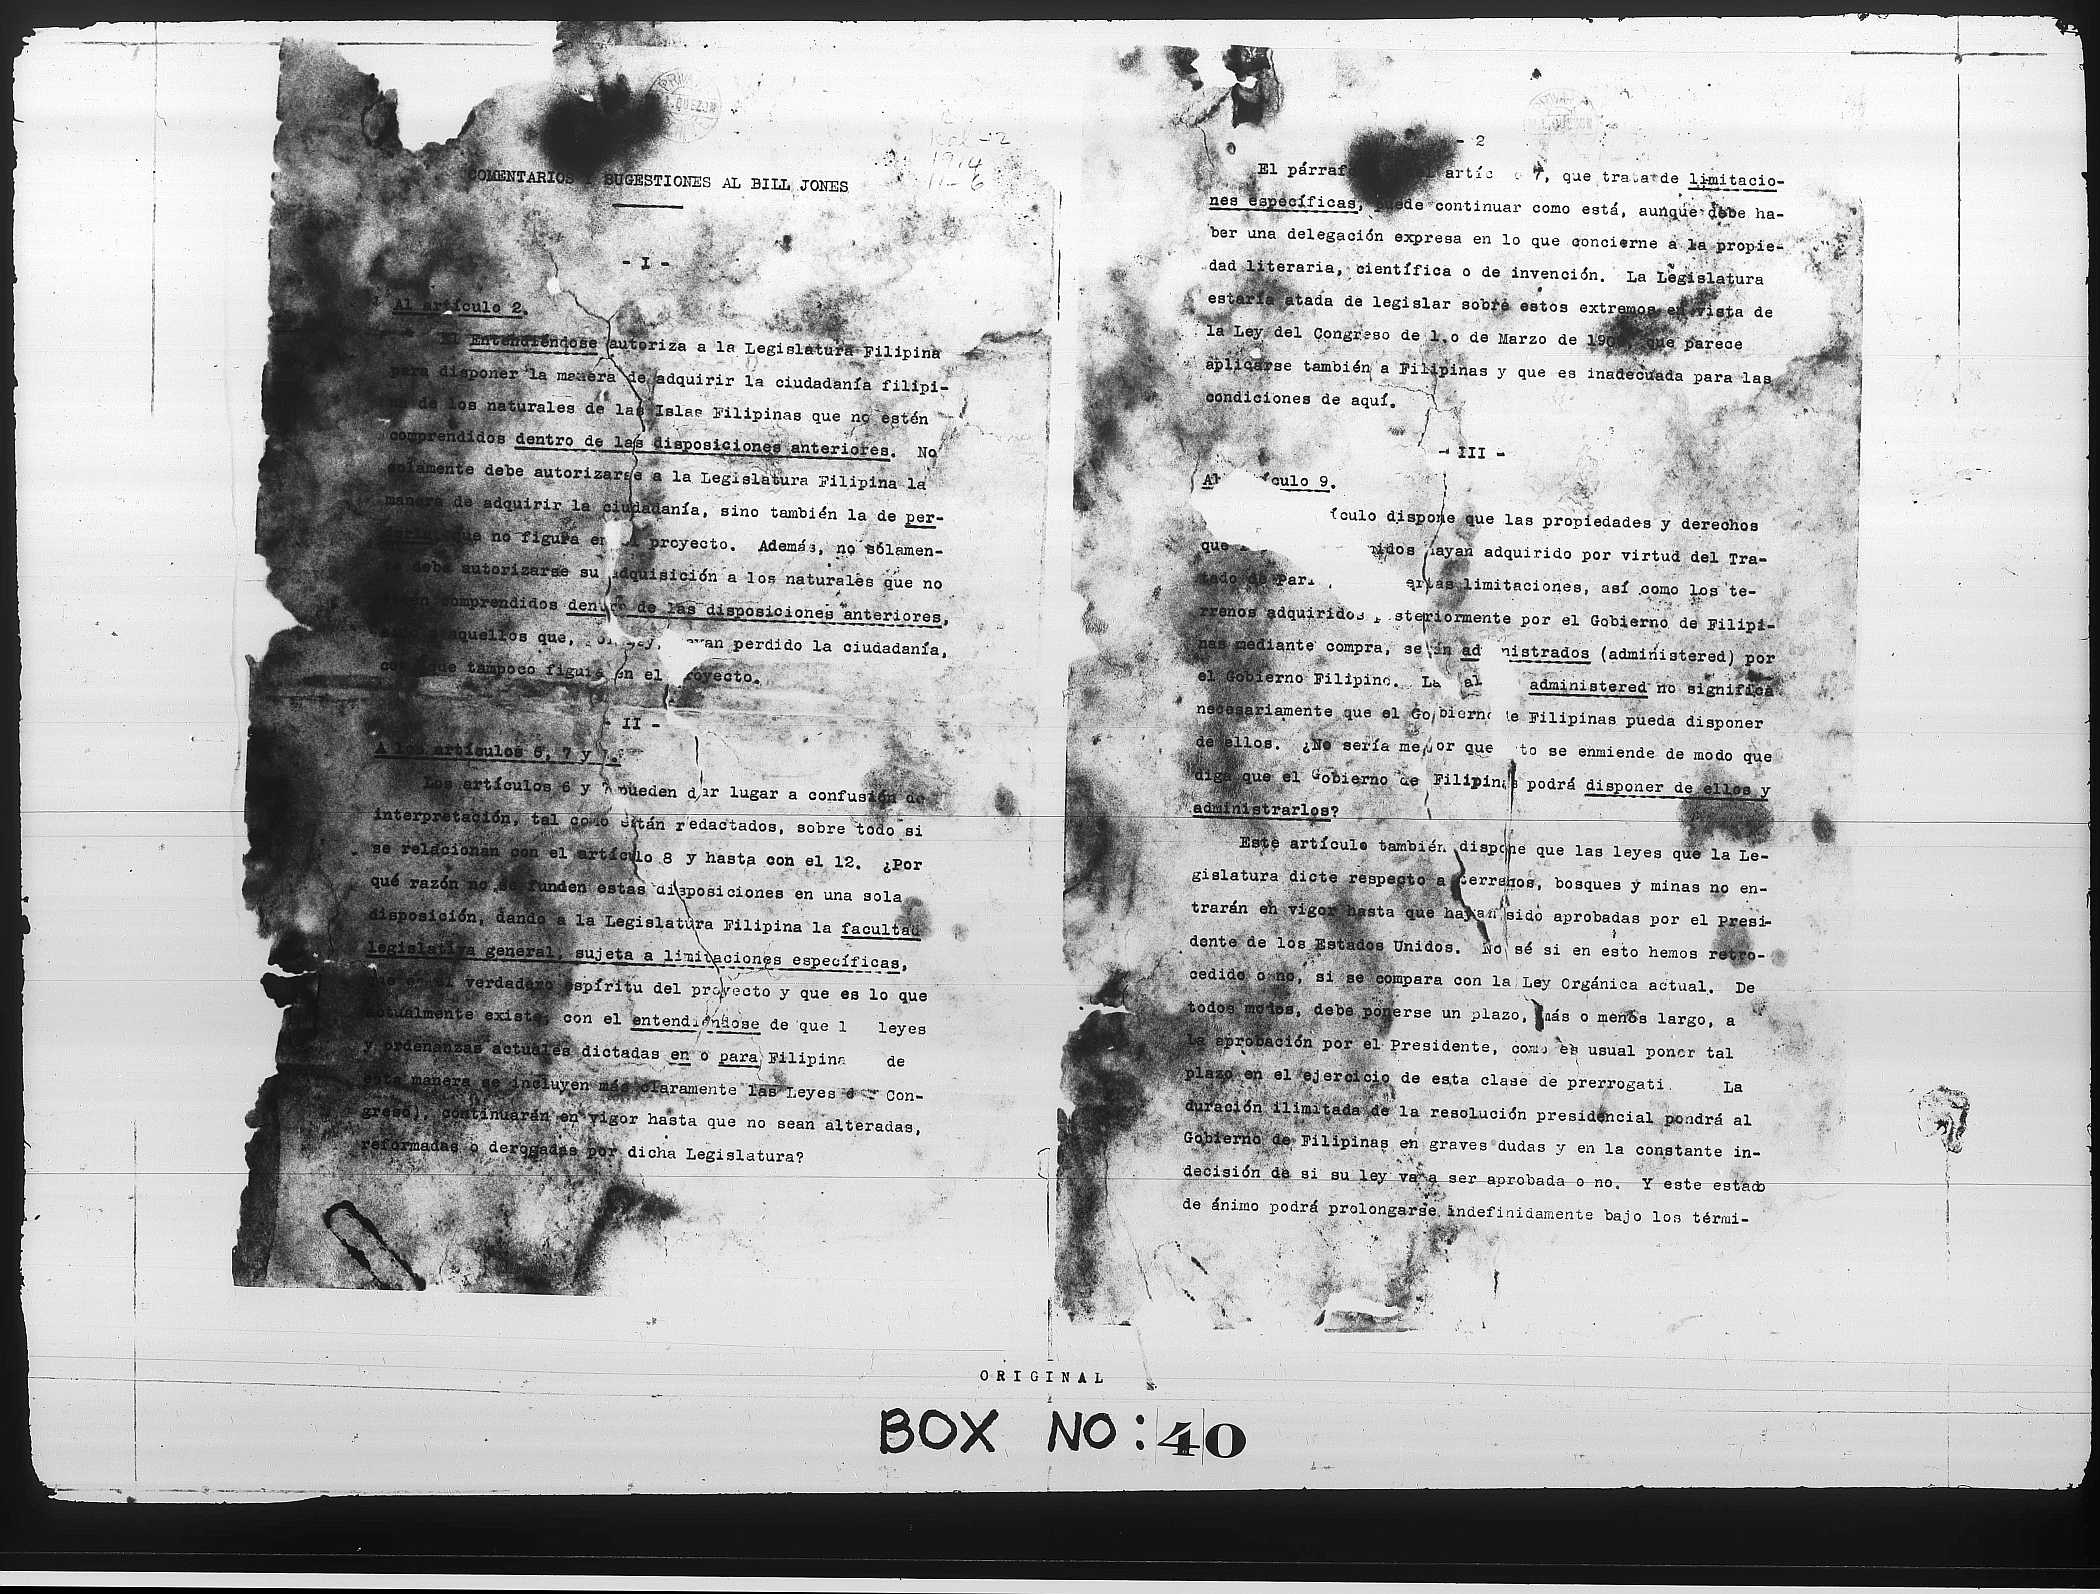 COMENTARIOS SUGESTIONES AL BILL JONES
- I -
Al artículo 2.
El Entendiéndose autoriza a la Legislatura Filipina
para disponer la manera de adquirir la ciudadanía filipi-
na de los naturales de las Islas Filipinas que no estén
comprendidos dentro de las disposiciones anteriores. No
solamente debe autorizarse a la Legislatura Filipina la
manera de adquirir la ciudadanía, sino también la de per-
que no figura en proyecto. Además, no sólamen-
te debe autorizarse su adquisición a los naturales que no
comprendidos dentro de las disposiciones anteriores,
aquellos que, por ley, hayan perdido la ciudadanía,
que tampoco figura en el proyecto.
- II -
A los artículos 6, 7 y
Los artículos 6 y 7 pueden dar lugar a confusión de
interpretación, tal como están redactados, sobre todo si
se relacionan con el artículo 8 y hasta con el 12. ¿Por
qué razón no se funden estas disposiciones en una sola
disposición, dando a la Legislatura Filipina la facultad
legislativa general, sujeta a limitaciones específicas,
que es el verdadero espíritu del proyecto y que es lo que
actualmente existe, con el entendiéndose de que l leyes
y ordenanzas actuales dictadas en o para Filipina de
esta manera se incluyen más claramente las Leyes d Con-
greso), continuarán en vigor hasta que no sean alteradas,
reformadas o derogadas por dicha Legislatura?
- 2
El párraf artíc 7, que trata de limitacio-
nes específicas, puede continuar como está, aunque debe ha-
ber una delegación expresa en lo que concierne a la propie-
dad literaria, científica o de invención. La Legislatura
estaría atada de legislar sobre estos extremos en vista de
la Ley del Congreso de 1.o de Marzo de 190 que parece
aplicarse también a Filipinas y que es inadecuada para las
condiciones de aquí.
- III -
Al ículo 9.
ículo dispone que las propiedades y derechos
que nidos hayan adquirido por virtud del Tra-
tado de Parí ertas limitaciones, así como los te-
rrenos adquiridos posteriormente por el Gobierno de Filipi-
nas mediante compra, serán administrados (administered) por
el Gobierno Filipino. La al administered no significa
necesariamente que el Gobierno de Filipinas pueda disponer
de ellos. ¿No sería mejor que to se enmiende de modo que
diga que el Gobierno de Filipinas podrá disponer de ellos y
administrarlos?
Este artículo también dispone que las leyes que la Le-
gislatura dicte respecto a terrenos, bosques y minas no en-
trarán en vigor hasta que hayan sido aprobadas por el Presi-
dente de los Estados Unidos. No sé si en esto hemos retro-
cedido o no, si se compara con la Ley Orgánica actual. De
todos modos, debe ponerse un plazo, más o menos largo, a
la aprobación por el Presidente, como es usual poner tal
plazo en el ejercicio de esta clase de prerrogati La
duración ilimitada de la resolución presidencial pondrá al
Gobierno de Filipinas en graves dudas y en la constante in-
decisión de si su ley va a ser aprobada o no. Y este estado
de ánimo podrá prolongarse indefinidamente bajo los térmi-
ORIGINAL
BOX NO: 40